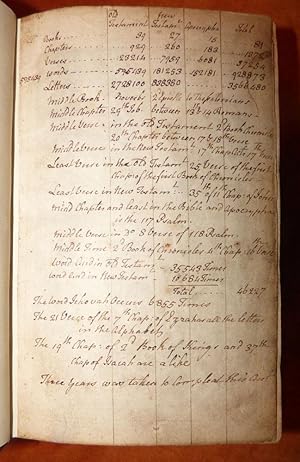 Old New
Testament Testamt Apocrypha Total
Books 39 27 15 81
Chapters 929 260 183 1372
Verses 23214 7959 6081 37254
Words 181253
Letters 2728100 3566480
Middle Book Proverbs 2d Epistle to Thessalonians
Middle Chapter 29th Job between 13th & 14 Romans
Middle Verse in the Old Testament 2d Book Chronicles
20th Chapter between 17 & 18 Verse
Middle Verse in the New Testamt 17th Chap Acts 17 Verse
Least Verse in the Old Testamt 25 Verse of the first
Chap of the first Book of Chronicles
Least Verse in New Testamt 35th of 11th Chap of John
Midd Chapter and least in the Bible and apocrypha
is the 117 Psalm
Middle Verse in Do 8 Verse of 118 Psalm
Middle 2d Book of Chronicles 4th Chap 16 Verse
Word and in Old Testamt 35543 Times
Word and in New Testam 10684 Times
Total 46227
The Word Jehovah Occurs 6855 Times
The 21 Verse of the 7th Chap of Ezra has all the letters
in the Alphabet
The 19th Chap: of 2d Book of Kings and 37th
Chap of Isaiah are alike
Three Years was taken to Compleat this Book